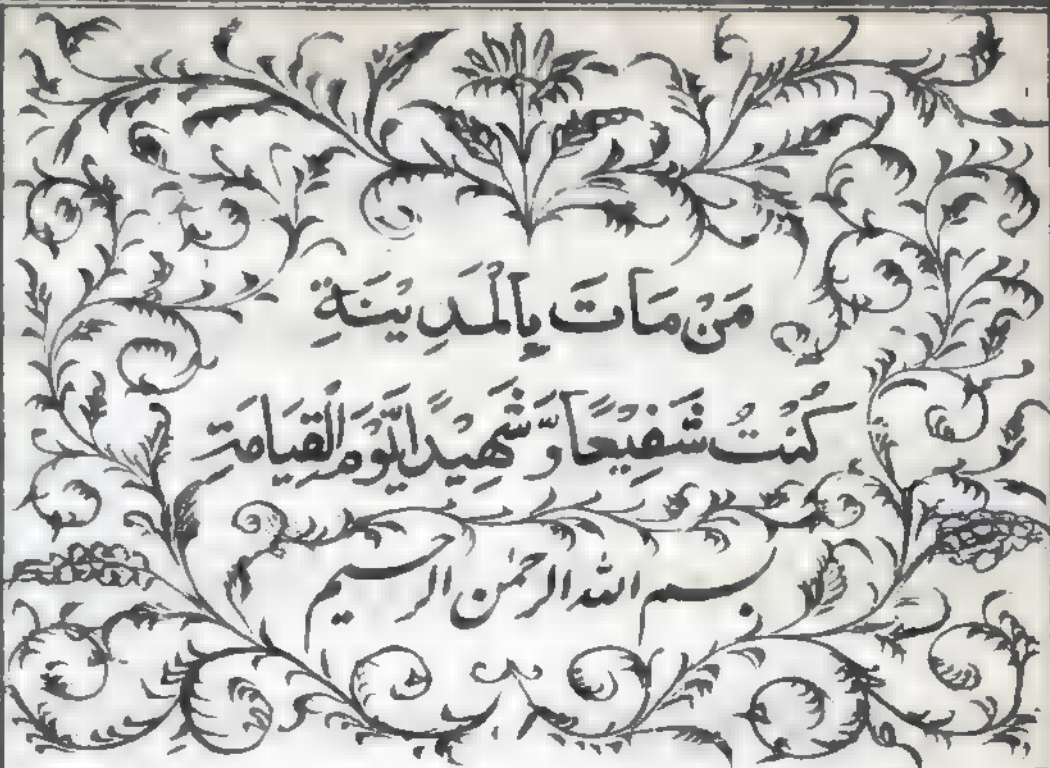 مَنْ مَاتَ بِالْمَدِيْنَةِ
كُنْتُ شَفِيْعًا وَّشَهِيْدًا يَّوْمَ الْقِيَامَةِ
بسم الله الرحمٰن الرحيم